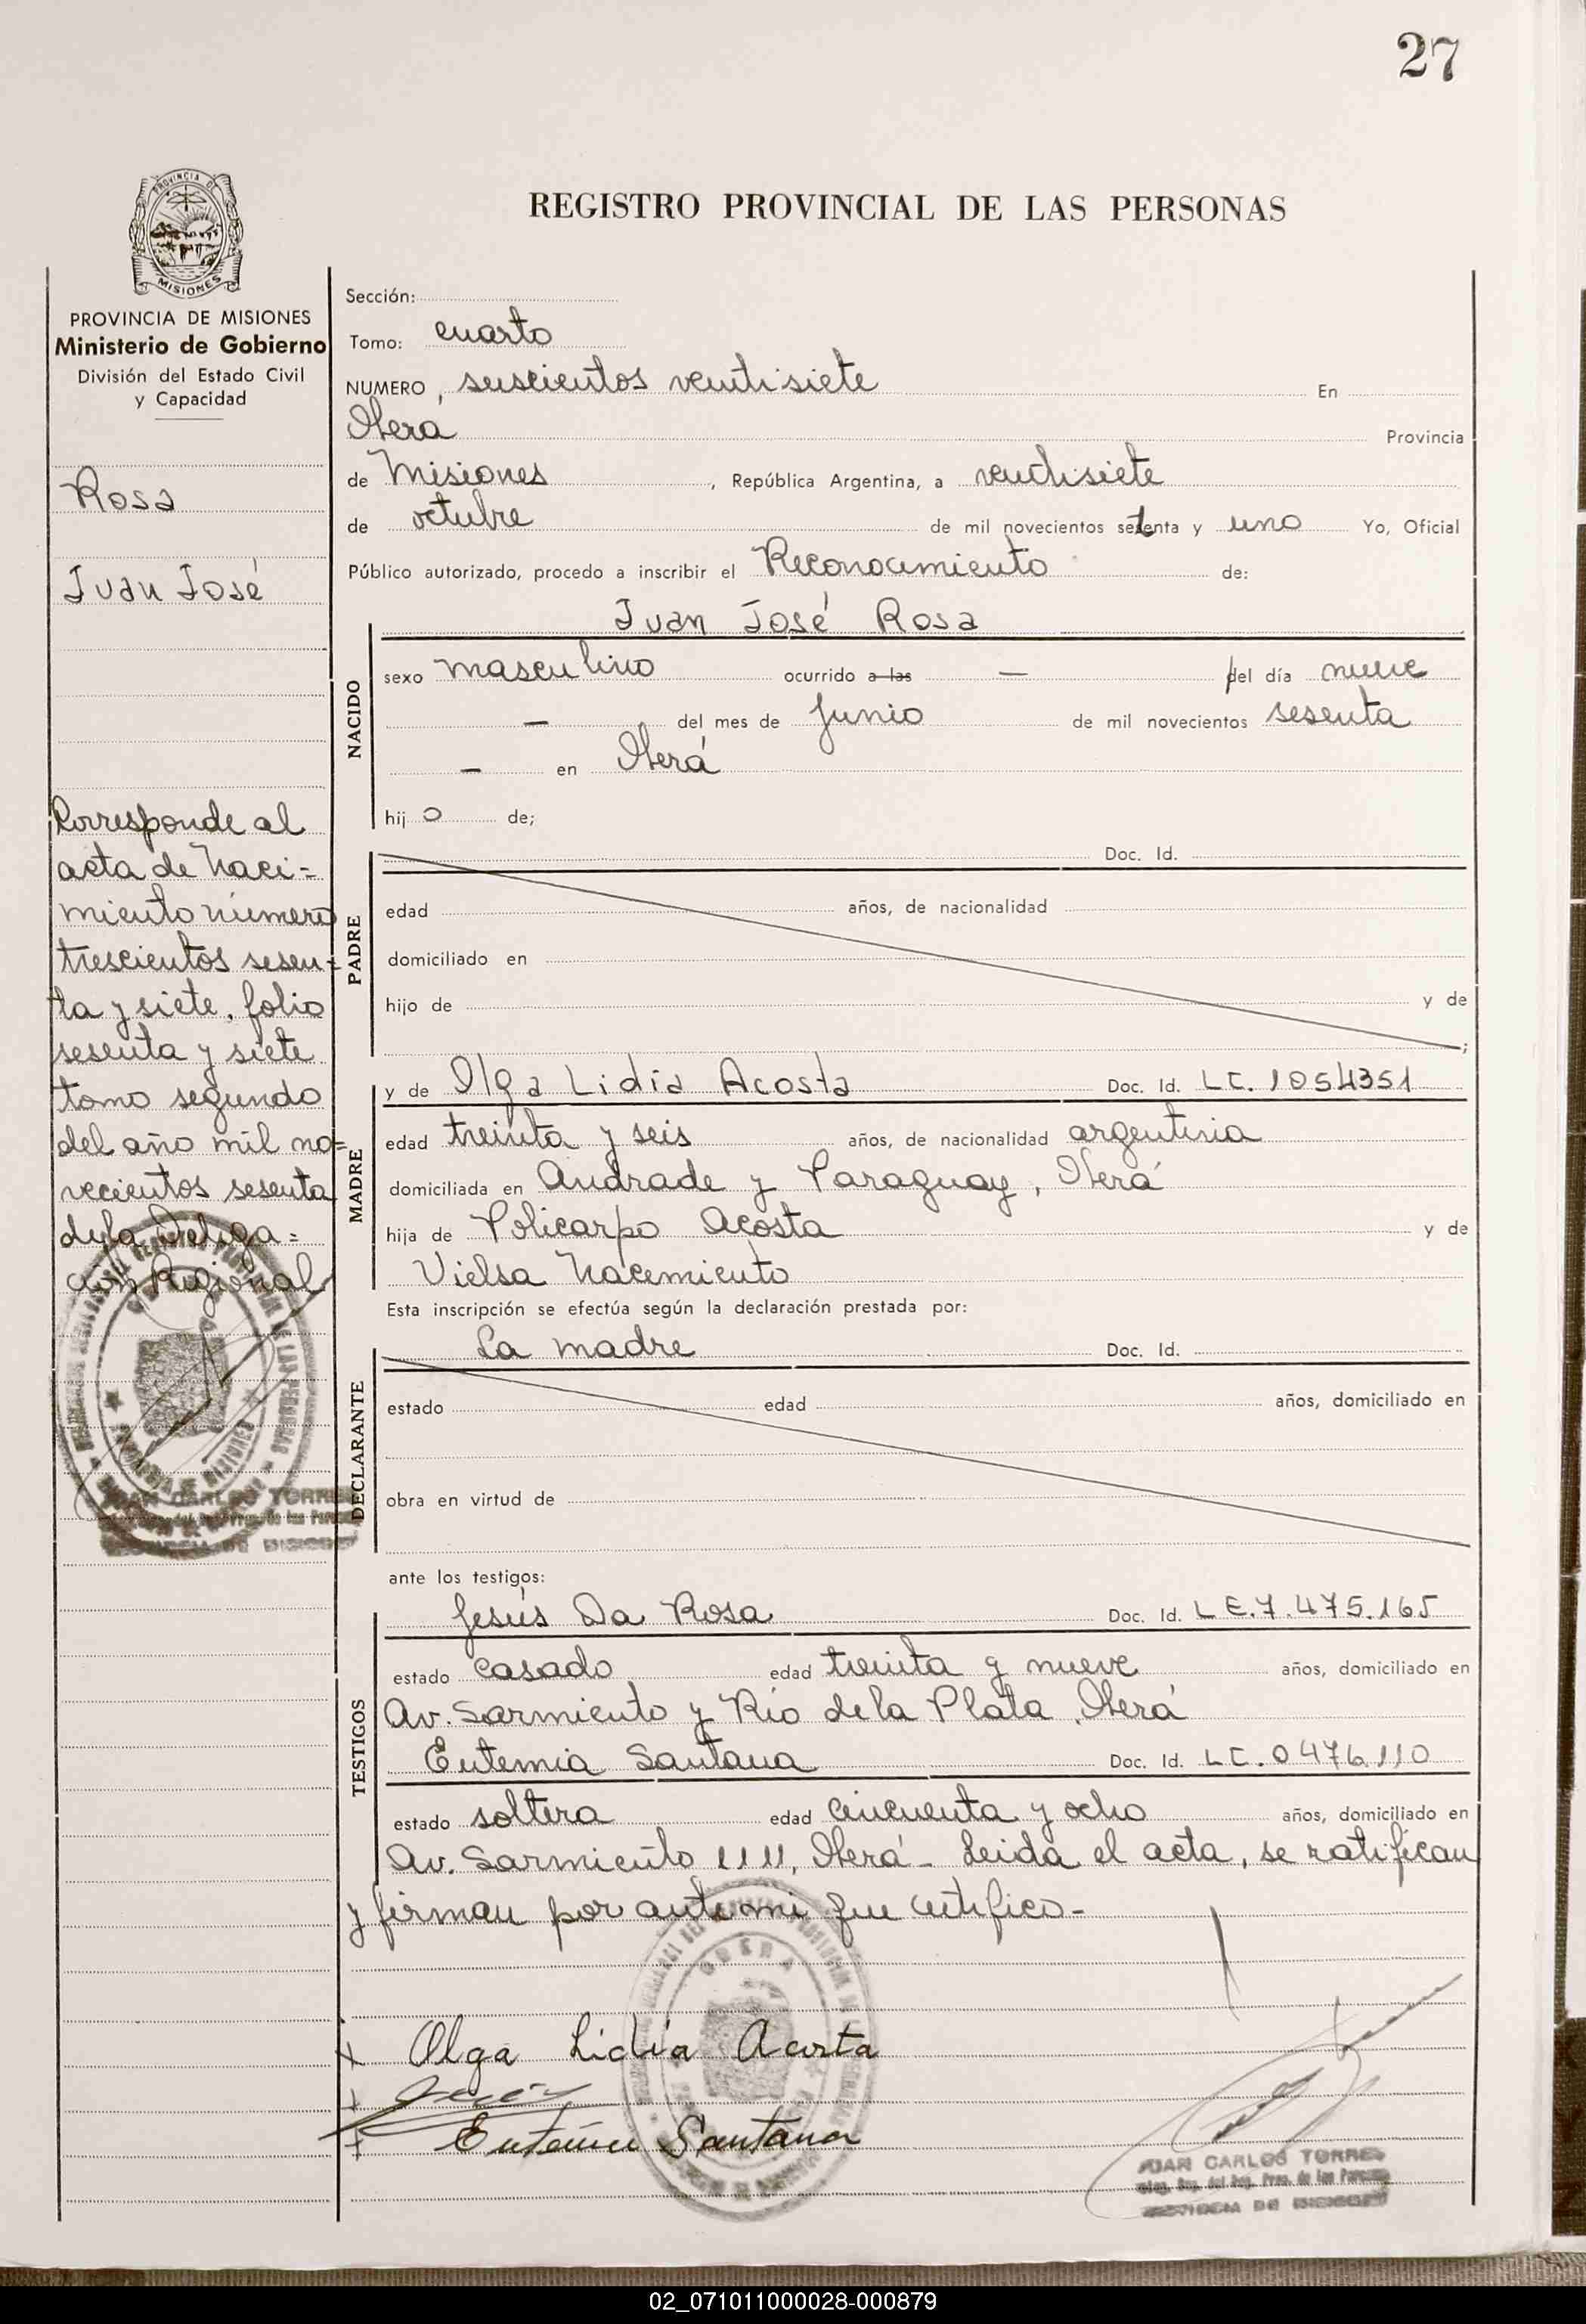 27
REGISTRO PROVINCIAL DE LAS PERSONAS
PROVINCIA DE
MISIONES
PROVINCIA DE MISIONES
Ministerio de Gobierno
División del Estado Civil
y Capacidad
Rosa
Juan José
Corresponde al
acta de Naci=
miento número
trescientos sesen=
ta y siete, folio
sesenta y siete
tomo segundo
del año mil no=
vecientos sesenta
de la Delega=
ción Regional
JUAN CARLOS TORRES
Sección:
Tomo: cuarto
NUMERO, seiscientos veintisiete En
Oberá Provincia
de Misiones, República Argentina, a veintisiete
de octubre de mil novecientos setenta y uno Yo, Oficial
Público autorizado, procedo a inscribir el Reconocimiento de:
Juan José Rosa
NACIDO
sexo masculino ocurrido a las — del día nueve
— del mes de Junio de mil novecientos sesenta
— en Oberá
hijo de;
Doc. Id.
PADRE
edad años, de nacionalidad
domiciliado en
hijo de y de
;
y de Olga Lidia Acosta Doc. Id. LC. 1054351
MADRE
edad treinta y seis años, de nacionalidad argentina
domiciliada en Andrade y Paraguay, Oberá
hija de Policarpo Acosta y de
Vielsa Nacemiento
Esta inscripción se efectúa según la declaración prestada por:
La madre Doc. Id.
DECLARANTE
estado edad años, domiciliado en
obra en virtud de
ante los testigos:
Jesús Da Rosa Doc. Id. LE. 7.475.165
TESTIGOS
estado casado edad treinta y nueve años, domiciliado en
Av. Sarmiento y Río de la Plata, Oberá
Eutemia Santana Doc. Id. LC. 0476.110
estado soltera edad cincuenta y ocho años, domiciliado en
Av. Sarmiento 1111, Oberá - Leida el acta, se ratifican
y firman por ante mi que certifico -
OBERA
x Olga Lidia Acosta
x
x Eutemia Santana
JUAN CARLOS TORRES
Deleg. Reg. del Reg. Prov. de las Personas
PROVINCIA DE MISIONES
02_071011000028-000879